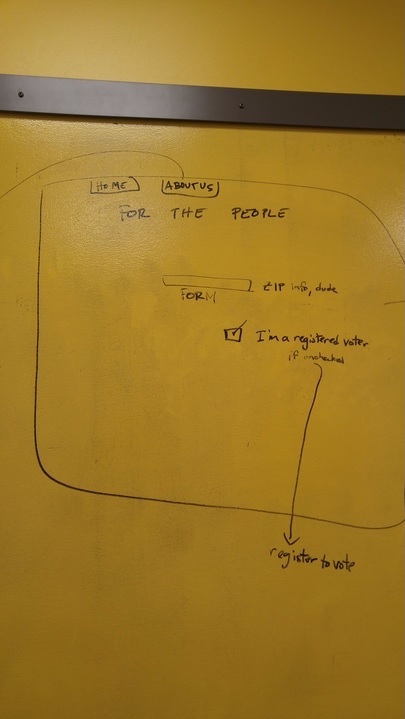 HOME ABOUT US
FOR THE PEOPLE
ZIP info, dude
FORM
I'm a registered voter
if unchecked
register to vote